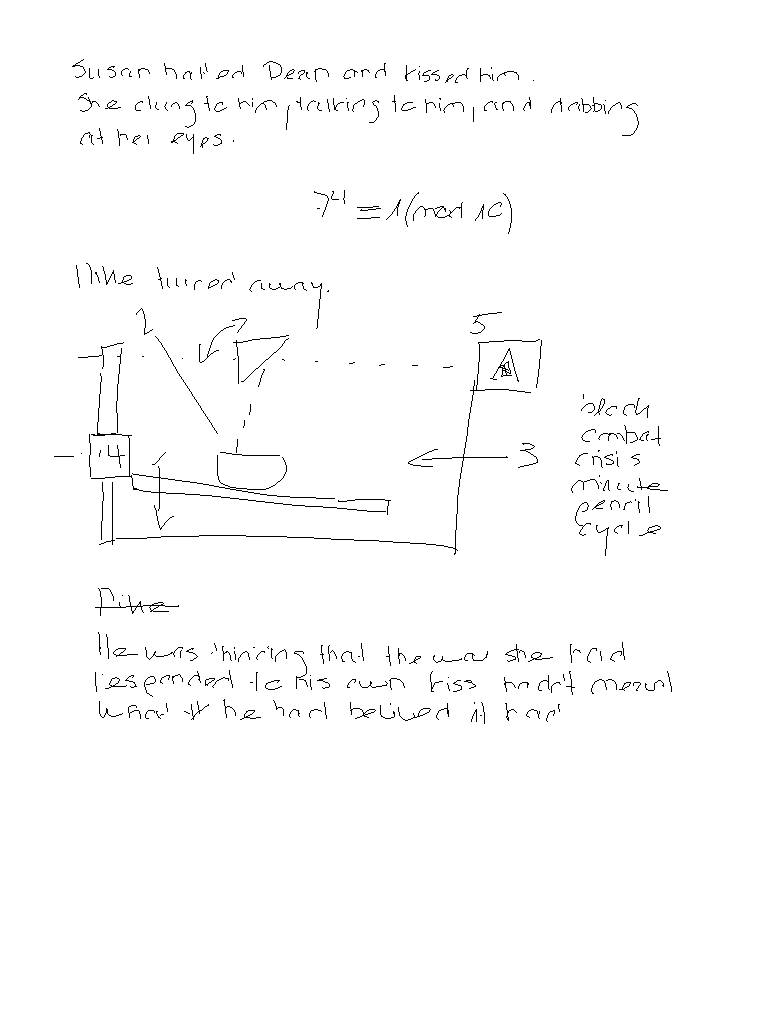 Susan hailed Dean and kissed him.
She clung to him, talking to him, and dabbing
at her eyes.
7⁴ ≡ 1 (mod 10)
Mike turned away.
2
5
A
14
3
black
combat
crisis
minute
pencil
cycle
He was thinking that the way she had
responded to his own kiss hadn't meant
what he had belived it had